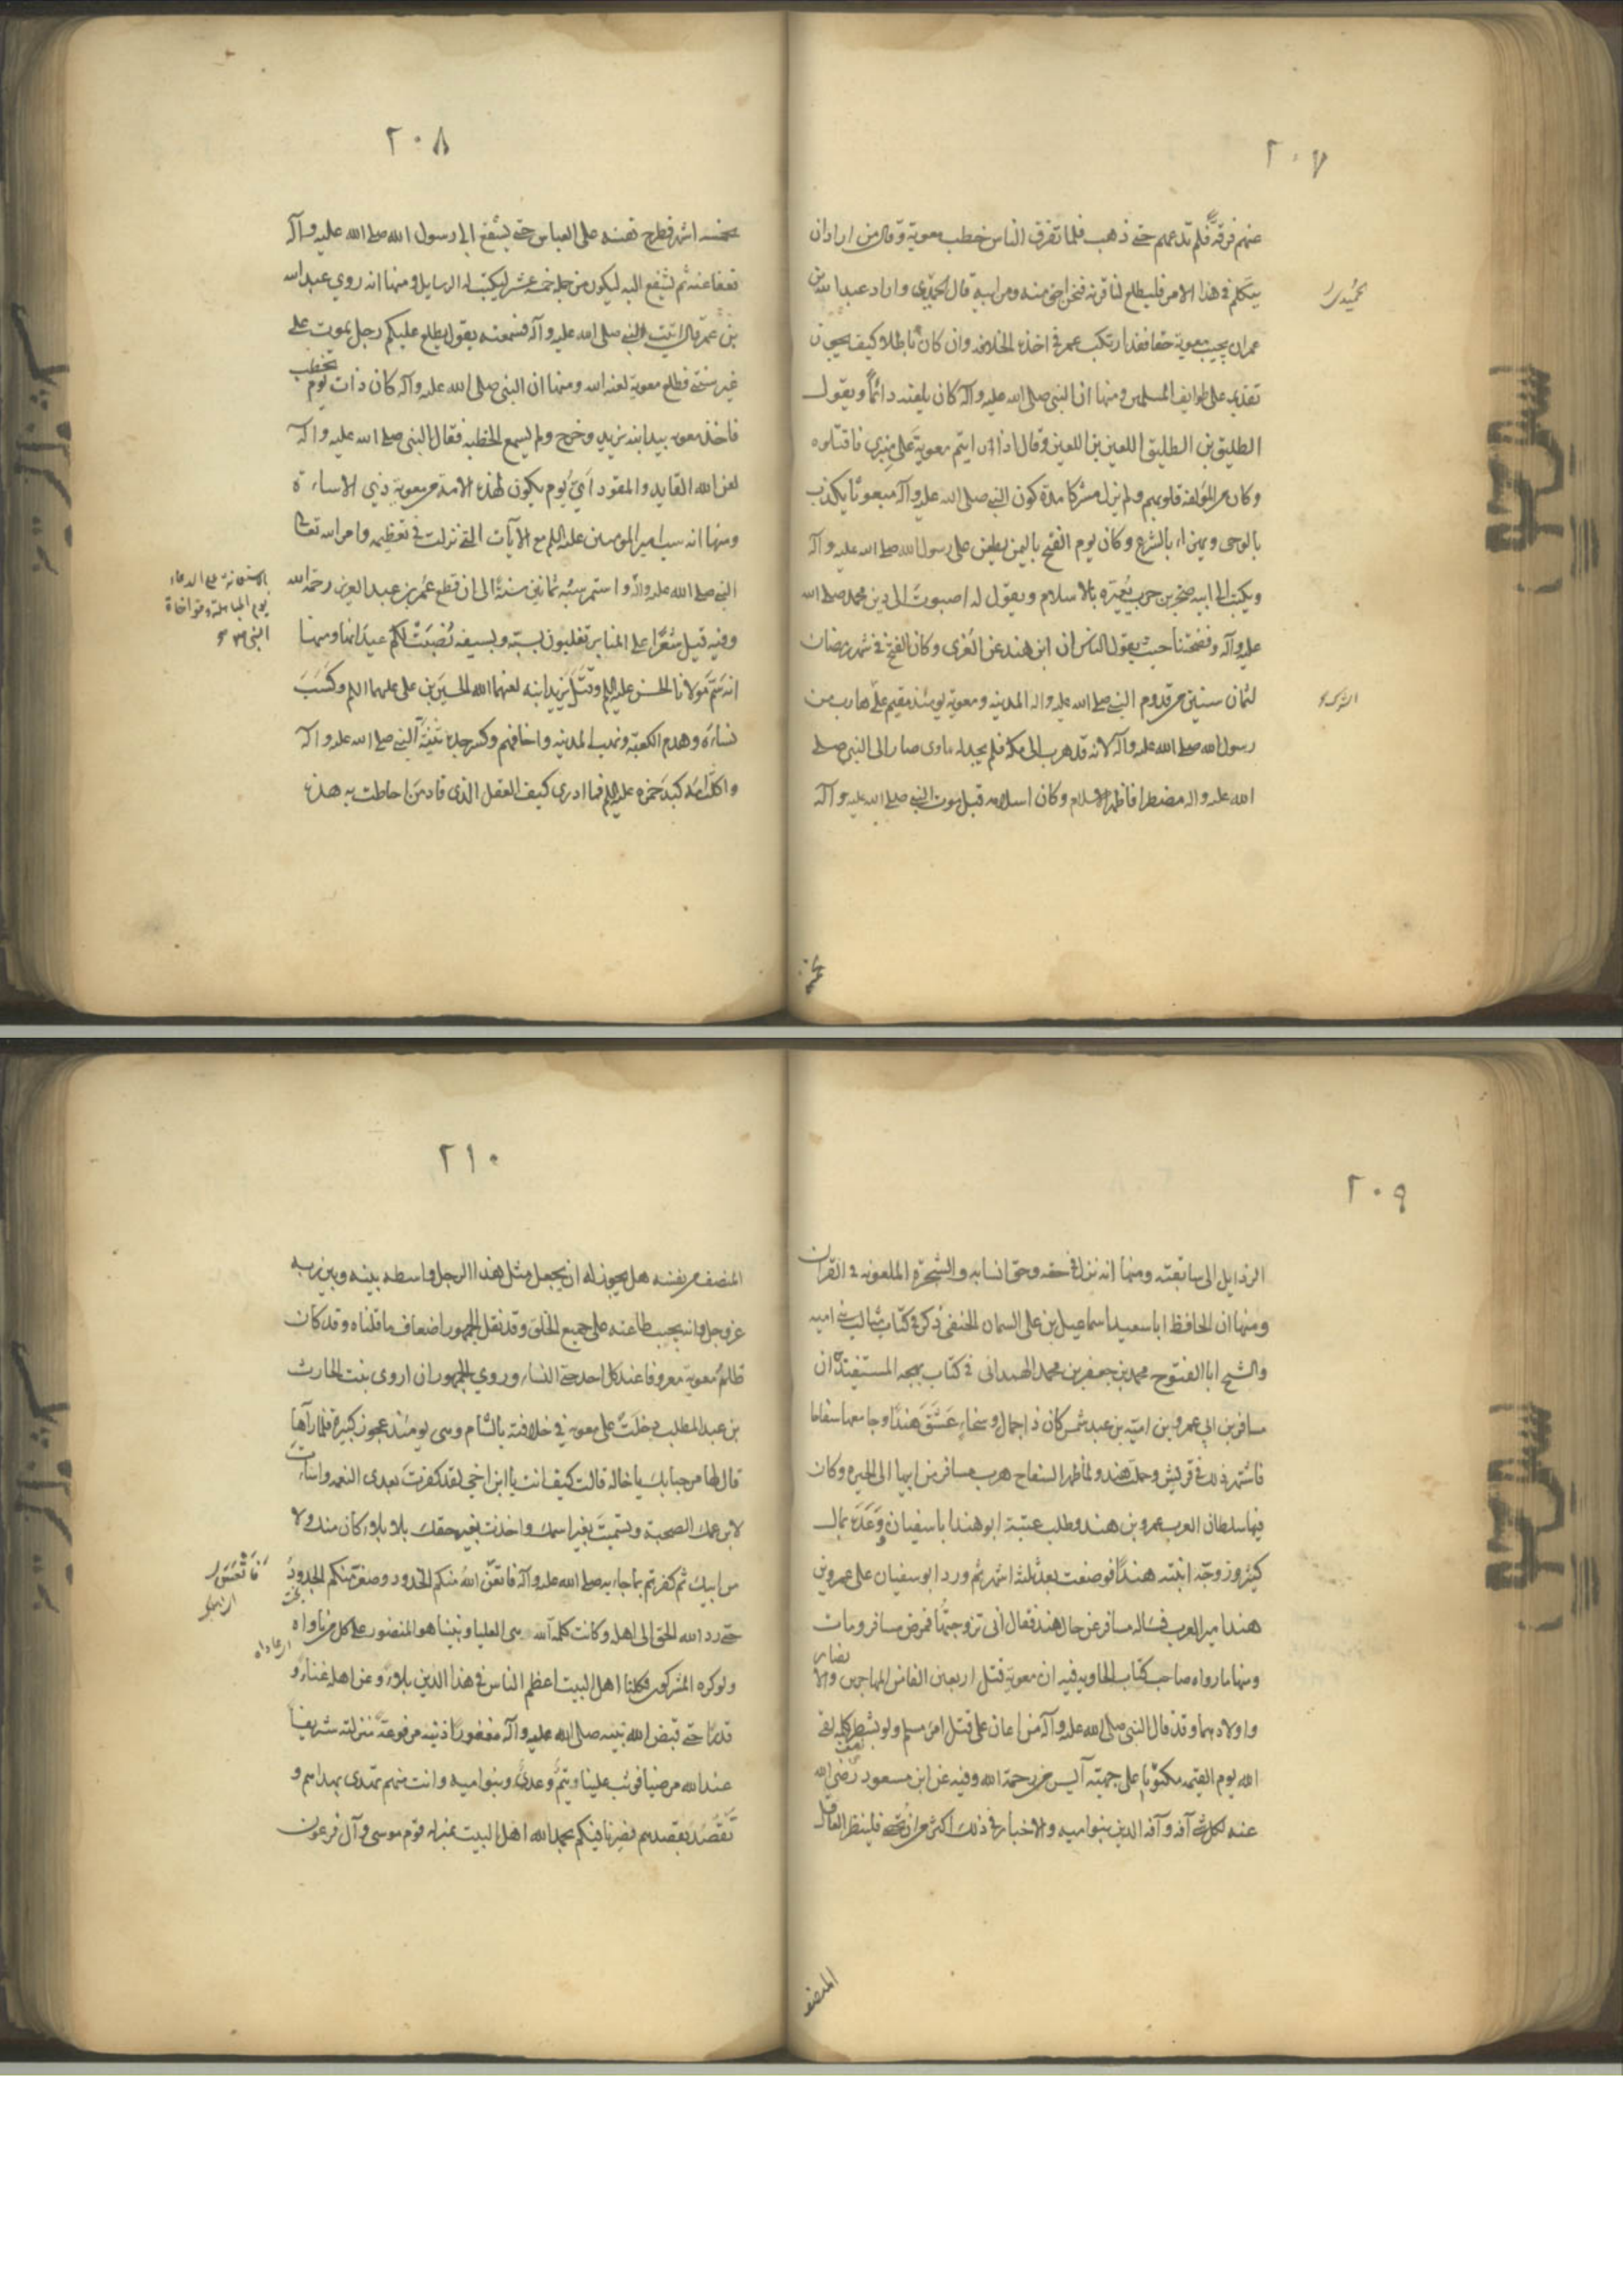 ٢٠٧
عنهم فرقة فلم تدعهم حتى ذهب فلما تفرق الناس خطب معوية وقال من اراد ان
يتكلم في هذا الامر فليطلع لنا قرنه فنحن احق منه ومن ابيه قال الحميدي واراد عبدالله بن
عمر ان يجيب معوية حقا فقد ارتكب عمر في اخذه الخلافة وان كان باطلا كيف يجوز
تقديمه على طوايف المسلمين ومنها ان النبي صلى الله عليه وآله كان يلعنه دائماً ويقول
الطليق بن الطليق اللعين بن اللعين وقال اذا رايتم معوية على منبري فاقتلوه
وكان من المؤلفة قلوبهم ولم يزل مشركا مدة كون النبي صلى الله عليه وآله مبعوثا يكذب
بالوحي ويهزاء بالشرع وكان يوم الفتح باليمن يطعن على رسول الله صلى الله عليه وآله
ويكتب الى ابيه صخر بن حرب يعيّره بالاسلام ويقول له اصبوت الى دين محمد صلى الله
عليه وآله وفضحتنا حيث يقول الناس ان ابن هند عن العزى وكان الفتح في شهر رمضان
لثمان سنين من قدوم النبي صلى الله عليه واله المدينه ومعوية يومئذ مقيم على هارب من
رسول الله صلى الله عليه وآله لانه قد هرب الى مكة فلم يجد له ماوى صار الى النبي صلى
الله عليه واله مضطرا فاظهر الاسلام وكان اسلامه قبل موت النبي صلى الله عليه وآله
٢٠٨
بخمسه اشهر فطرح نفسه على العباس حتى يشفع الى رسول الله صلى الله عليه وآله
فعفا عنه ثم تشفع اليه ليكون من جملة خمسة عشر ليكتب له الرسايل ومنها انه روي عبدالله
بن عمر قال اتيت النبي صلى الله عليه وآله فسمعته يقول يطلع عليكم رجل يموت على
غير سنتي فطلع معوية لعنه الله ومنها ان النبي صلى الله عليه وآله كان ذات يوم يخطب
فاخذ معوية بيد ابنه يزيد وخرج ولم يسمع الخطبة فقال النبي صلى الله عليه وآله
لعن الله القايد والمقود اَيّ يوم يكون لهذه الامة من معوية ذي الاساءة
ومنها انه سب امير المومنين عليه السلم مع الآيات التي نزلت في تعظيمه وامر الله تعالى
النبي صلى الله عليه وآله واستمر سبّه ثمانين سنةً الى ان قطع عُمر بن عبد العزيز رحمه الله
بالاستعانة على الدعاء
يوم المباهلة ومواخاة
النبي
وفيه قيل شعرًا على المنابر تعلنون بسبه وبسيفه نُصِبَتْ لكم عيدانها ومنها
انه سَمَّ مَولانا الحسن عليه السلم وقتل يزيد ابنه لعنهما الله الحسين بن علي عليهما السلم وكسَبَ
نساءَه وهدم الكعبة ونهب المدينه واخافهم وكسر جده ثنيّة النبي صلى الله عليه وآله
واكلت امّه كبدَ حمزه عليه السلم فما ادري كيف العقل الذي قاد من احاطت به هذه
٢٠٩
الرذايل الى متابعته ومنها انه نزل في حقه وحق انسابه والشجرة الملعونة في القرآن
ومنها ان الحافظ ابا سعيد اسماعيل بن علي السمان الحنفي ذكر في كتاب مثالب بني اميه
والشيخ ابا الفتوح محمد بن جعفر بن محمد الهمداني في كتاب بهجة المستفيدة ان
مسافر بن ابي عمرو بن امية بن عبد شمس كان ذا جمال وسخاءٍ عَشَقَ هندًا وجامعها سفاحا
فاشتهر ذلك في قريش وحملت هند ولما ظهر السفاح هرب مسافر من ابيها الى الحيره وكان
فيها سلطان العرب عمرو بن هند وطلب عتبة ابو هند ابا سفيان ووَعَدَه بمال
كثير وزوجّه ابنته هندًا فوضعت بعد ثلثة اشهر ثم ورد ابو سفيان على عمرو بن
هند امير العرب فسأله مسافر عن حال هند فقال اني تزوجتُها فمرض مسافر ومات
ومنها ما رواه صاحب كتاب الهاويه فيه ان معوية قتل اربعين الفا من المهاجرين والانصار
واولادهما وقد قال النبي صلى الله عليه وآله من اعان على قتل امرء مسلم ولو بشطر كلمه لقى
الله يوم القيمه مكتوباً على جبهته آيس من رحمة الله وفيه عن ابن مسعود رضي الله
عنه لكل شيء آفه وآفه الدين بنو اميه والاخبار في ذلك اكثر من ان تحصى فلينظر العاقل
المنصف
٢١٠
المنصف من نفسه هل يجوز له ان يجعل مثل هذا الرجل واسطه بينه وبين ربه
عز وجل وانه يجب طاعته على جميع الخلق وقد نقل الجمهور اضعاف ما قلناه وقد كان
ظلم معوية معروفا عند كل احد حتى النساء وروي الجمهور ان اروى بنت الحارث
بن عبد المطلب دخلَتْ على معوية في خلافته بالشام وهي يومئذ عجوز كبيرة فلما رآها
قال لها مرحبا بك يا خاله قالت كيف انت يا ابن اخي لقد كفرتَ بعدي النعمه واسَاءتَ
لابن عمك الصحبة وتسميتَ بغير اسمك واخذت بغير حقك بلا بلاء كان منك ولا
من ابيك ثم كفرتم بما جاء به صلى الله عليه وآله فاتعس اللهُ منكم الجدود وصغر منكم الخدودُ
حتى رد الله الحق الى اهله وكانت كلمة الله هي العليا ونبينا هو المنصور على كل من ناواه
ولو كره المشركون فكلنا اهل البيت اعظم الناس في هذا الدين بلاءً وعن اهله غناءً و
قدرًا حتى قبض الله نبيه صلى الله عليه وآله مغفورًا ذنبه مرفوعةً منزلته شريفاً
عند الله مرضيا فوثب علينا وتيمُ وعديُّ وبنو اميه وانت منهم تهتدي بهداهم و
تَقْصُدُ بقصدهم فصرنا فيكم بحمد الله اهل البيت بمنزلة قوم موسى في آل فرعون